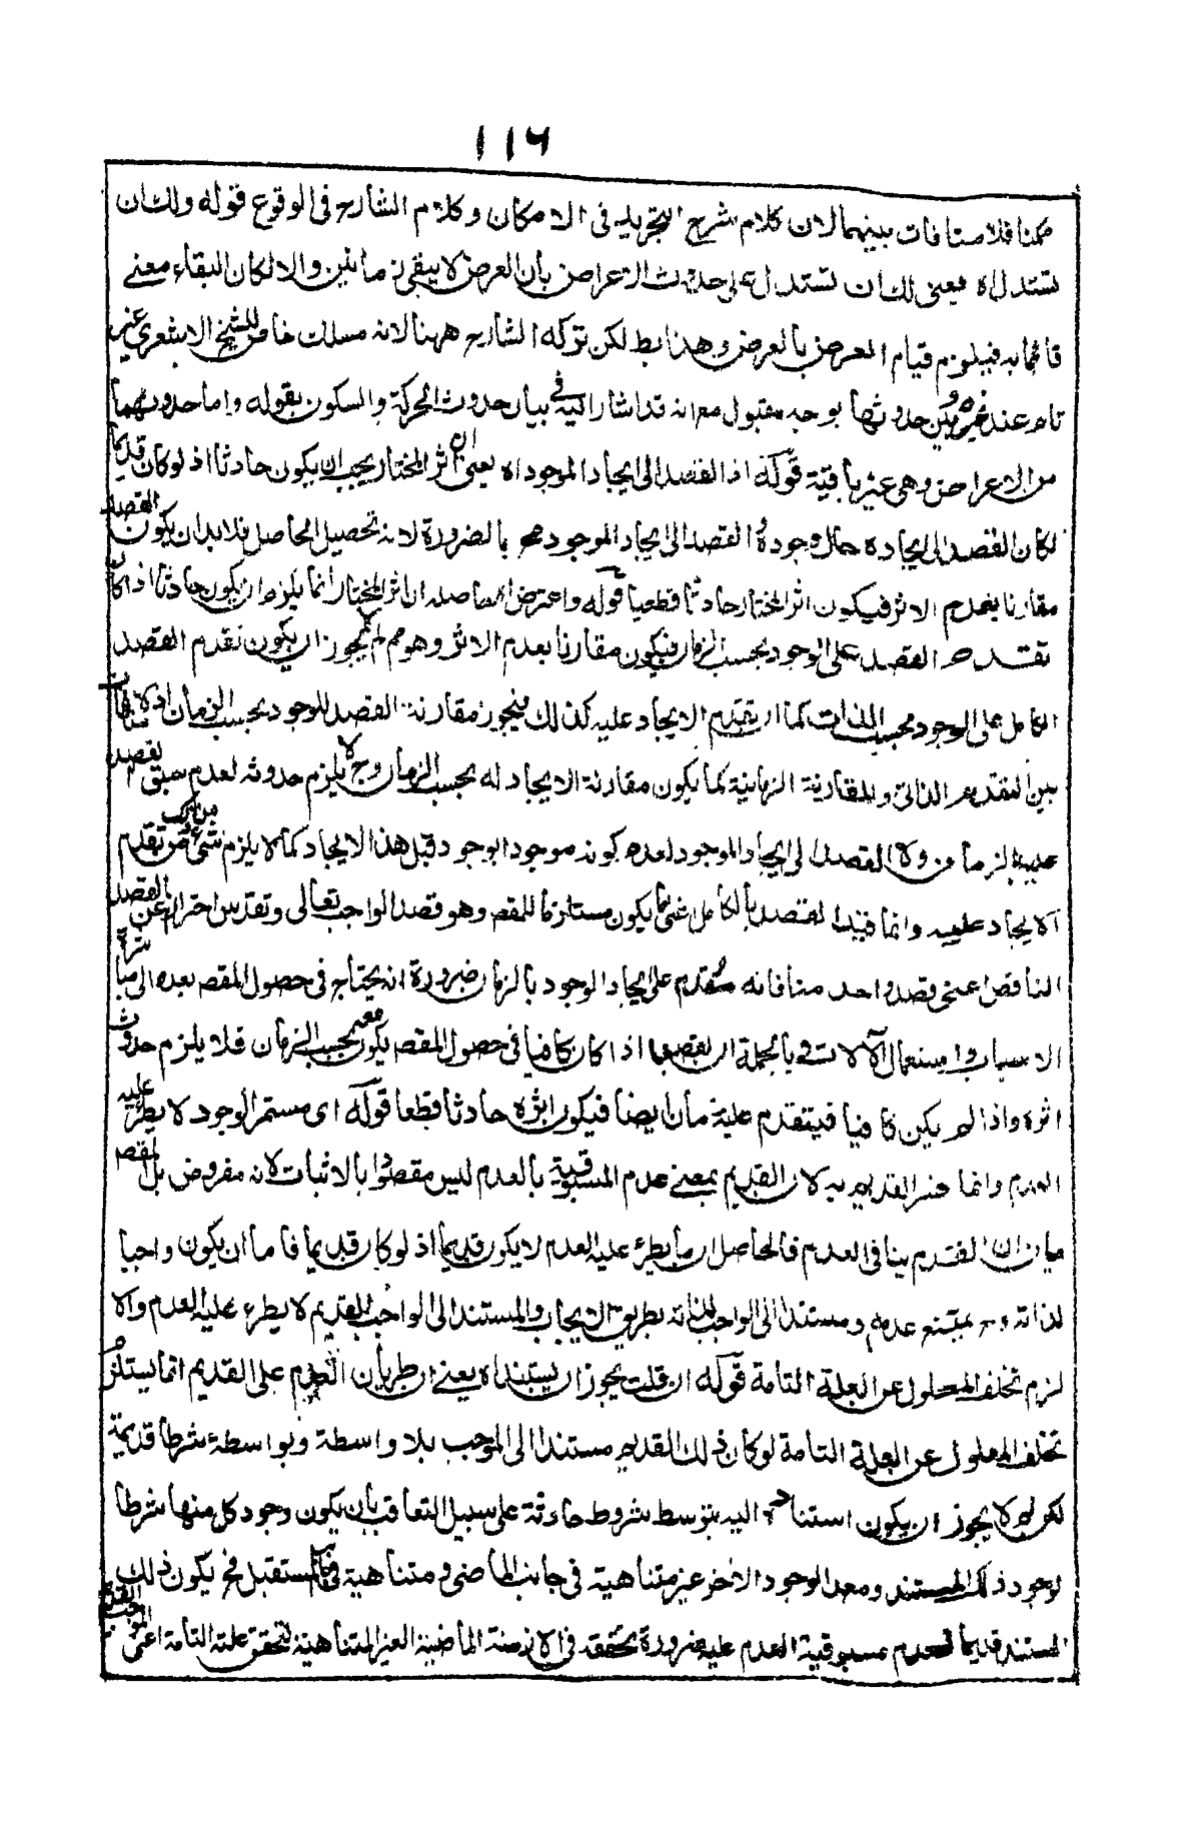 ۱۱۶
ممكنا فلا منافات بينهما لان كلام شرح التجريد فى الامكان وكلام الشارح فى الوقوع قوله ولك ان
تستدل اه يعنى لك ان تستدل على حدوث الاعراض بان العرض لا يبقى زمانين والا لكان البقاء معنى
قائما به فيلزم قيام العرض بالعرض وهذا بط لكن تركه الشارح ههنا لانه مسلك خاص للشيخ الاشعرى غير
تام عند غيره وبين حدوثها بوجه مقبول مع انه قد اشار اليه فى بيان حدوث الحركة والسكون بقوله واما حدوثهما
من الاعراض وهى غير باقية قوله اذ القصد الى ايجاد الموجود اه يعنى ان اثر المختار يجب ان يكون حادثا اذ لو كان قديما
لكان القصد الى ايجاده حال وجوده والقصد الى ايجاد الموجود مح بالضرورة لانه تحصيل الحاصل فلا بد ان يكون القصد
مقارنا بعدم الاثر فيكون اثر المختار حادثا قطعيا قوله واعترض اه حاصله ان اثر المختار انما يلزم ان يكون حادثا اذا كان
تقدم القصد على الوجود بحسب الزمان فيكون مقارنا بعدم الاثر وهو مم لم لا يجوز ان يكون تقدم القصد
الكامل على الوجود بحسب الذات كما ان تقدم الايجاد عليه كذلك فيجوز مقارنة القصد للوجود بحسب الزمان اذ لا منافات
بين التقديم الذاتى والمقارنة الزمانية كما يكون مقارنة الايجاد له بحسب الزمان وح لا يلزم حدوثه لعدم سبق القصد
عليه بالزمان ولا القصد الى ايجاد الموجود لعدم كونه موجودا بوجود قبل هذا الايجاد كما لا يلزم شئ من ذلك من تقدم
الايجاد عليه وانما قيد القصد بالكامل اعنى ما يكون مستلزما للمقصد وهو قصد الواجب تعالى وتقدس احترازا عن القصد
الناقص اعنى قصد واحد منا فانه متقدم على ايجاد الوجود بالزمان ضرورة انه يحتاج فى حصول المقصد بعده الى مباشرة
الاسباب واستعمال الآلات وبالجملة ان القصد اذا كان كافيا فى حصول المقصد يكون معه بحسب الزمان فلا يلزم حدوث
اثره واذا لم يكن كافيا فيتقدم عليه زمانا ايضا فيكون اثره حادثا قطعا قوله اى مستمر الوجود لا يطرء عليه
العدم وانما فسر القديم به لان القديم بمعنى عدم المسبوقية بالعدم ليس مقصودا بالاثبات لانه مفروض بل المقصد
بيان ان القدم ينافى العدم فالحاصل ان ما يطرء عليه العدم لا يكون قديما اذ لو كان قديما فاما ان يكون واجبا
لذاته وح يمتنع عدمه ومستندا الى الواجب لذاته بطريق الايجاب والمستند الى الواجب القديم لا يطرء عليه العدم والا
لزم تخلف المعلول عن العلة التامة قوله ان قلت يجوز ان يستند اه يعنى ان طريان العدم على القديم انما يستلزم
تخلف المعلول عن العلة التامة لو كان ذلك القديم مستندا الى الموجب بلا واسطة وبواسطة شرط قديمة
لكن لم لا يجوز ان يكون استناده اليه بتوسط شروط حادثة على سبيل التعاقب بان يكون وجود كل منها شرطا
لوجود ذلك المستند ومعد الوجود الاخر غير متناهية فى جانب الماضى ومتناهية فى جانب المستقبل فح يكون ذلك
المستند قديما لعدم مسبوقية العدم عليه ضرورة تحققه فى الازمنة الماضية الغير المتناهية لتحقق علته التامة اعنى الموجب القديم